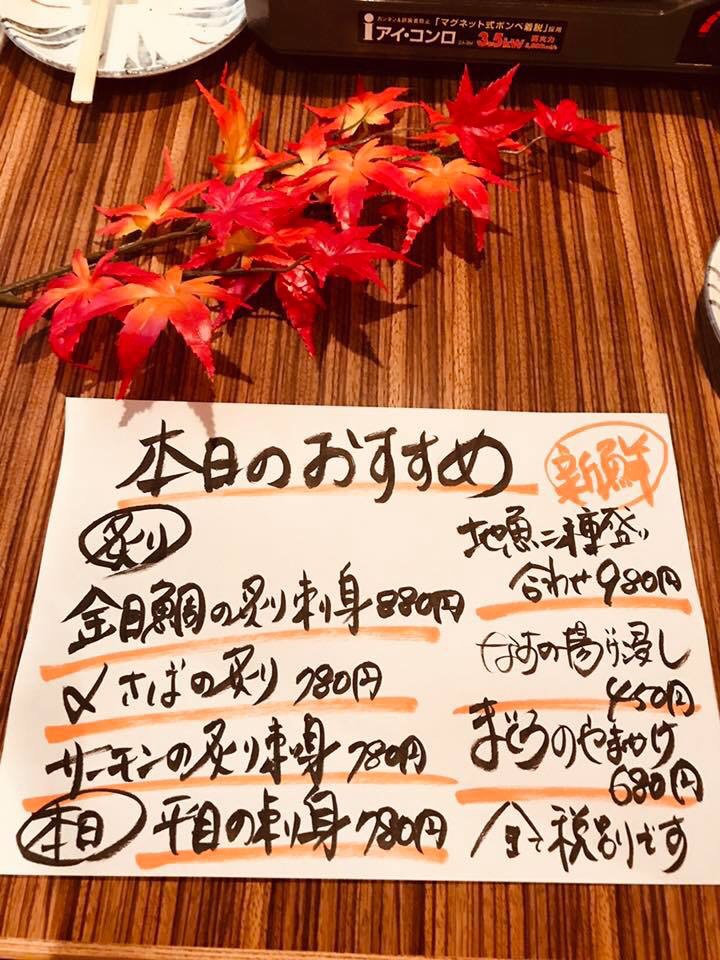 カンタン&誤装着防止「マグネット式ボンベ着脱」採用
iアイ・コンロ
3.5kW
本日のおすすめ
新鮮
炙り
金目鯛の炙り刺身 880円
〆さばの炙り 780円
サーモンの炙り刺身 780円
本日 平目の刺り身 780円
地魚二種盛り
合わせ 980円
なすの揚げ浸し
450円
まぐろのやまかけ
680円
全て税別です